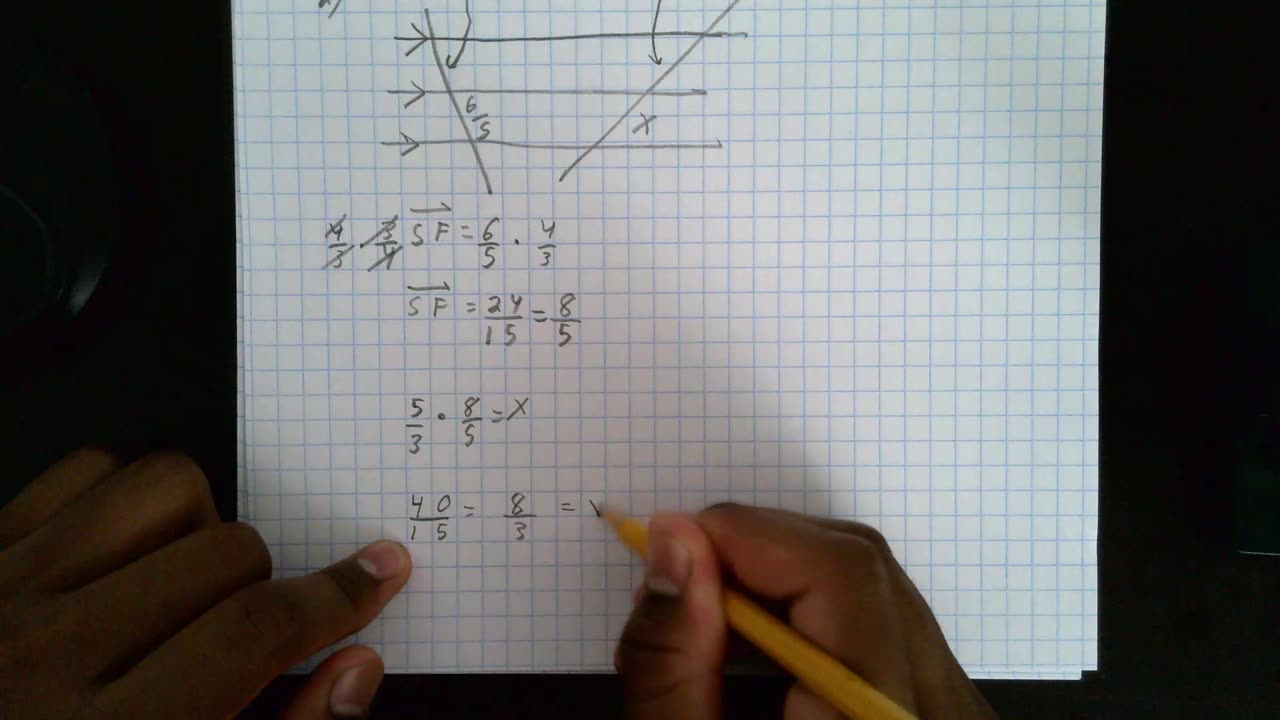 2)
6/5
X
4/3 · 3/4 SF = 6/5 · 4/3
SF = 24/15 = 8/5
5/3 · 8/5 = X
40/15 = 8/3 =